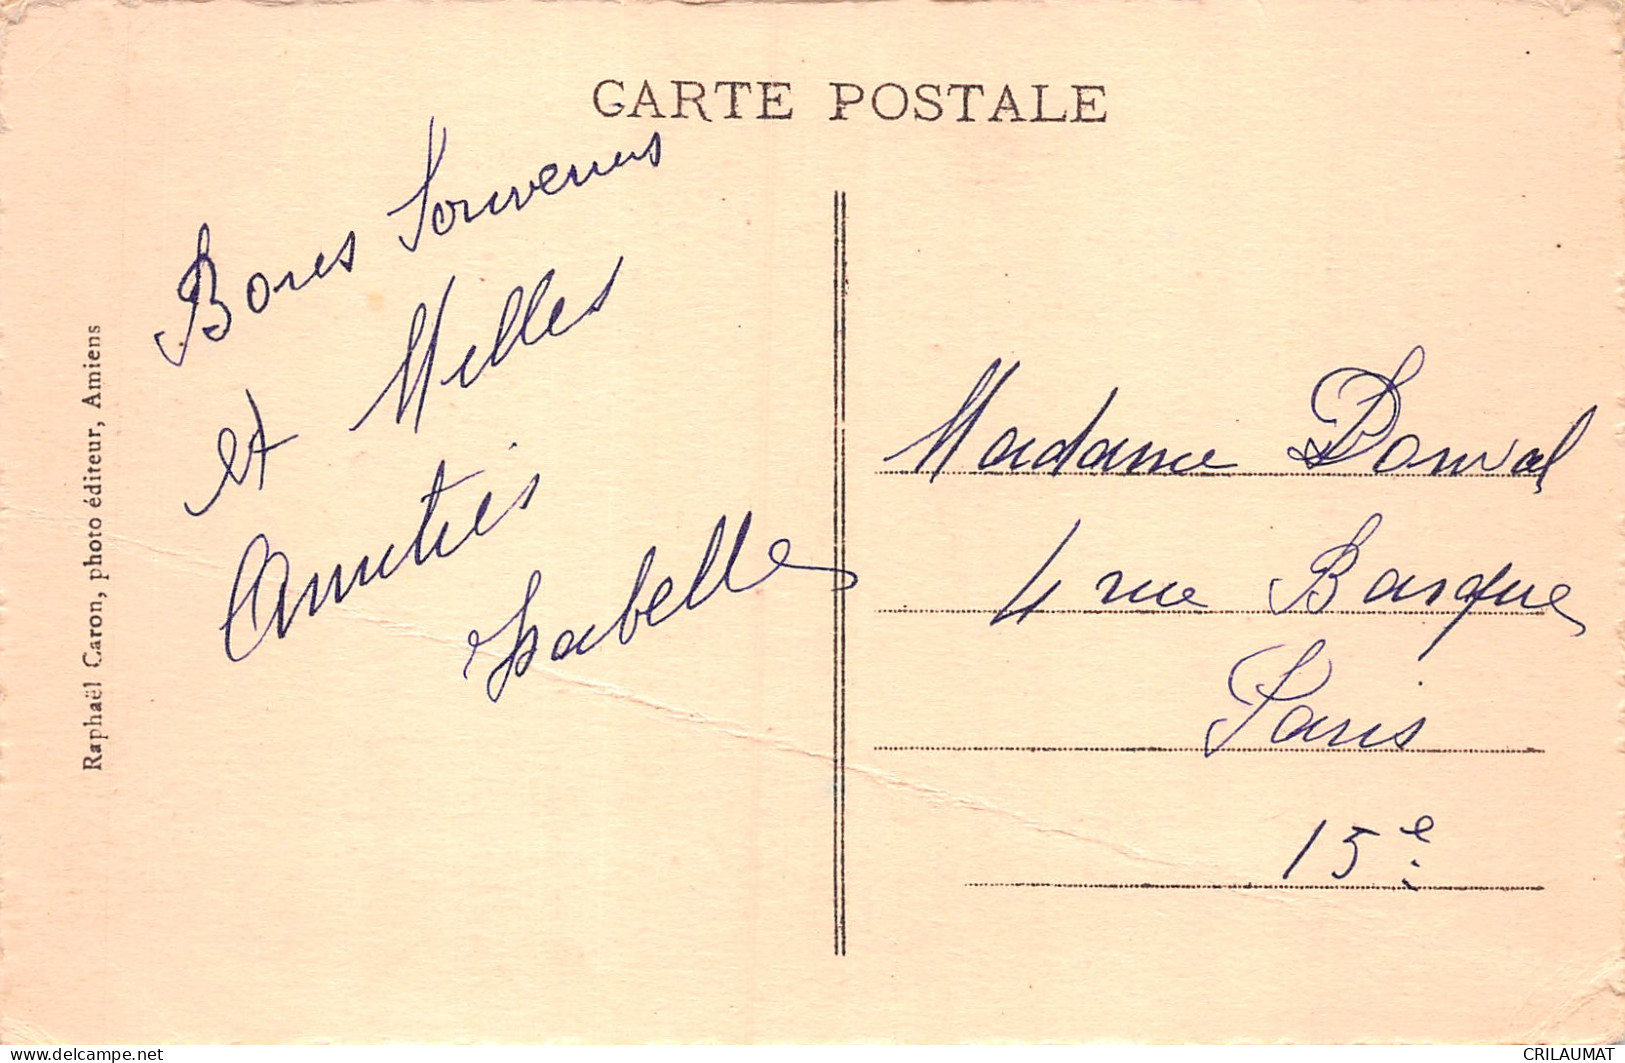 CARTE POSTALE
Bons Souvenirs
et Milles
Amitiés
Isabelle
Raphaël Caron, photo éditeur, Amiens
Madame
4 rue Basque
Paris
15e
www.delcampe.net
CRILAUMAT